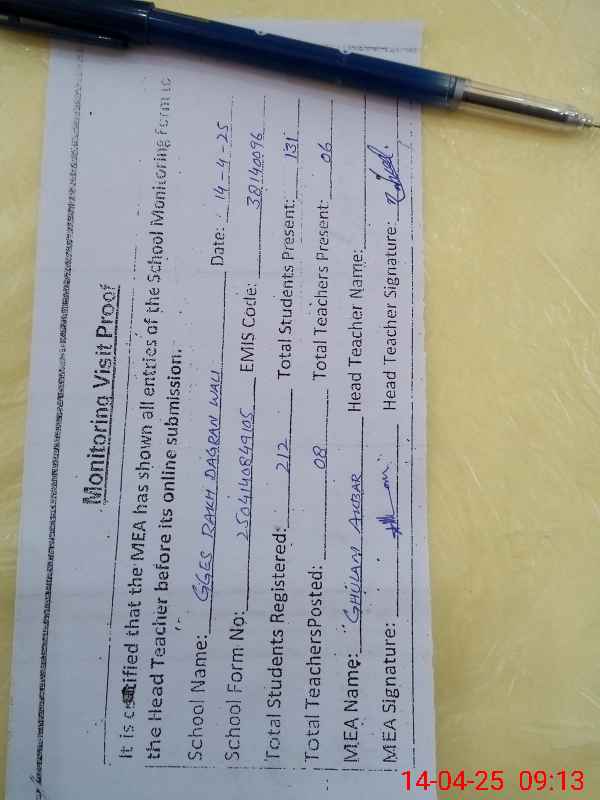 Monitoring Visit Proof
It is certified that the MEA has shown all entries of the School Monitoring Form to
the Head Teacher before its online submission.
School Name: GGES RAKH DAGRAN WALI Date: 14-4-25
School Form No: 2504140849105 EMIS Code: 38140096
Total Students Registered: 212 Total Students Present: 131
Total TeachersPosted: 08 Total Teachers Present: 06
MEA Name: GHULAM AKBAR Head Teacher Name:
MEA Signature: Head Teacher Signature:
14-04-25 09:13